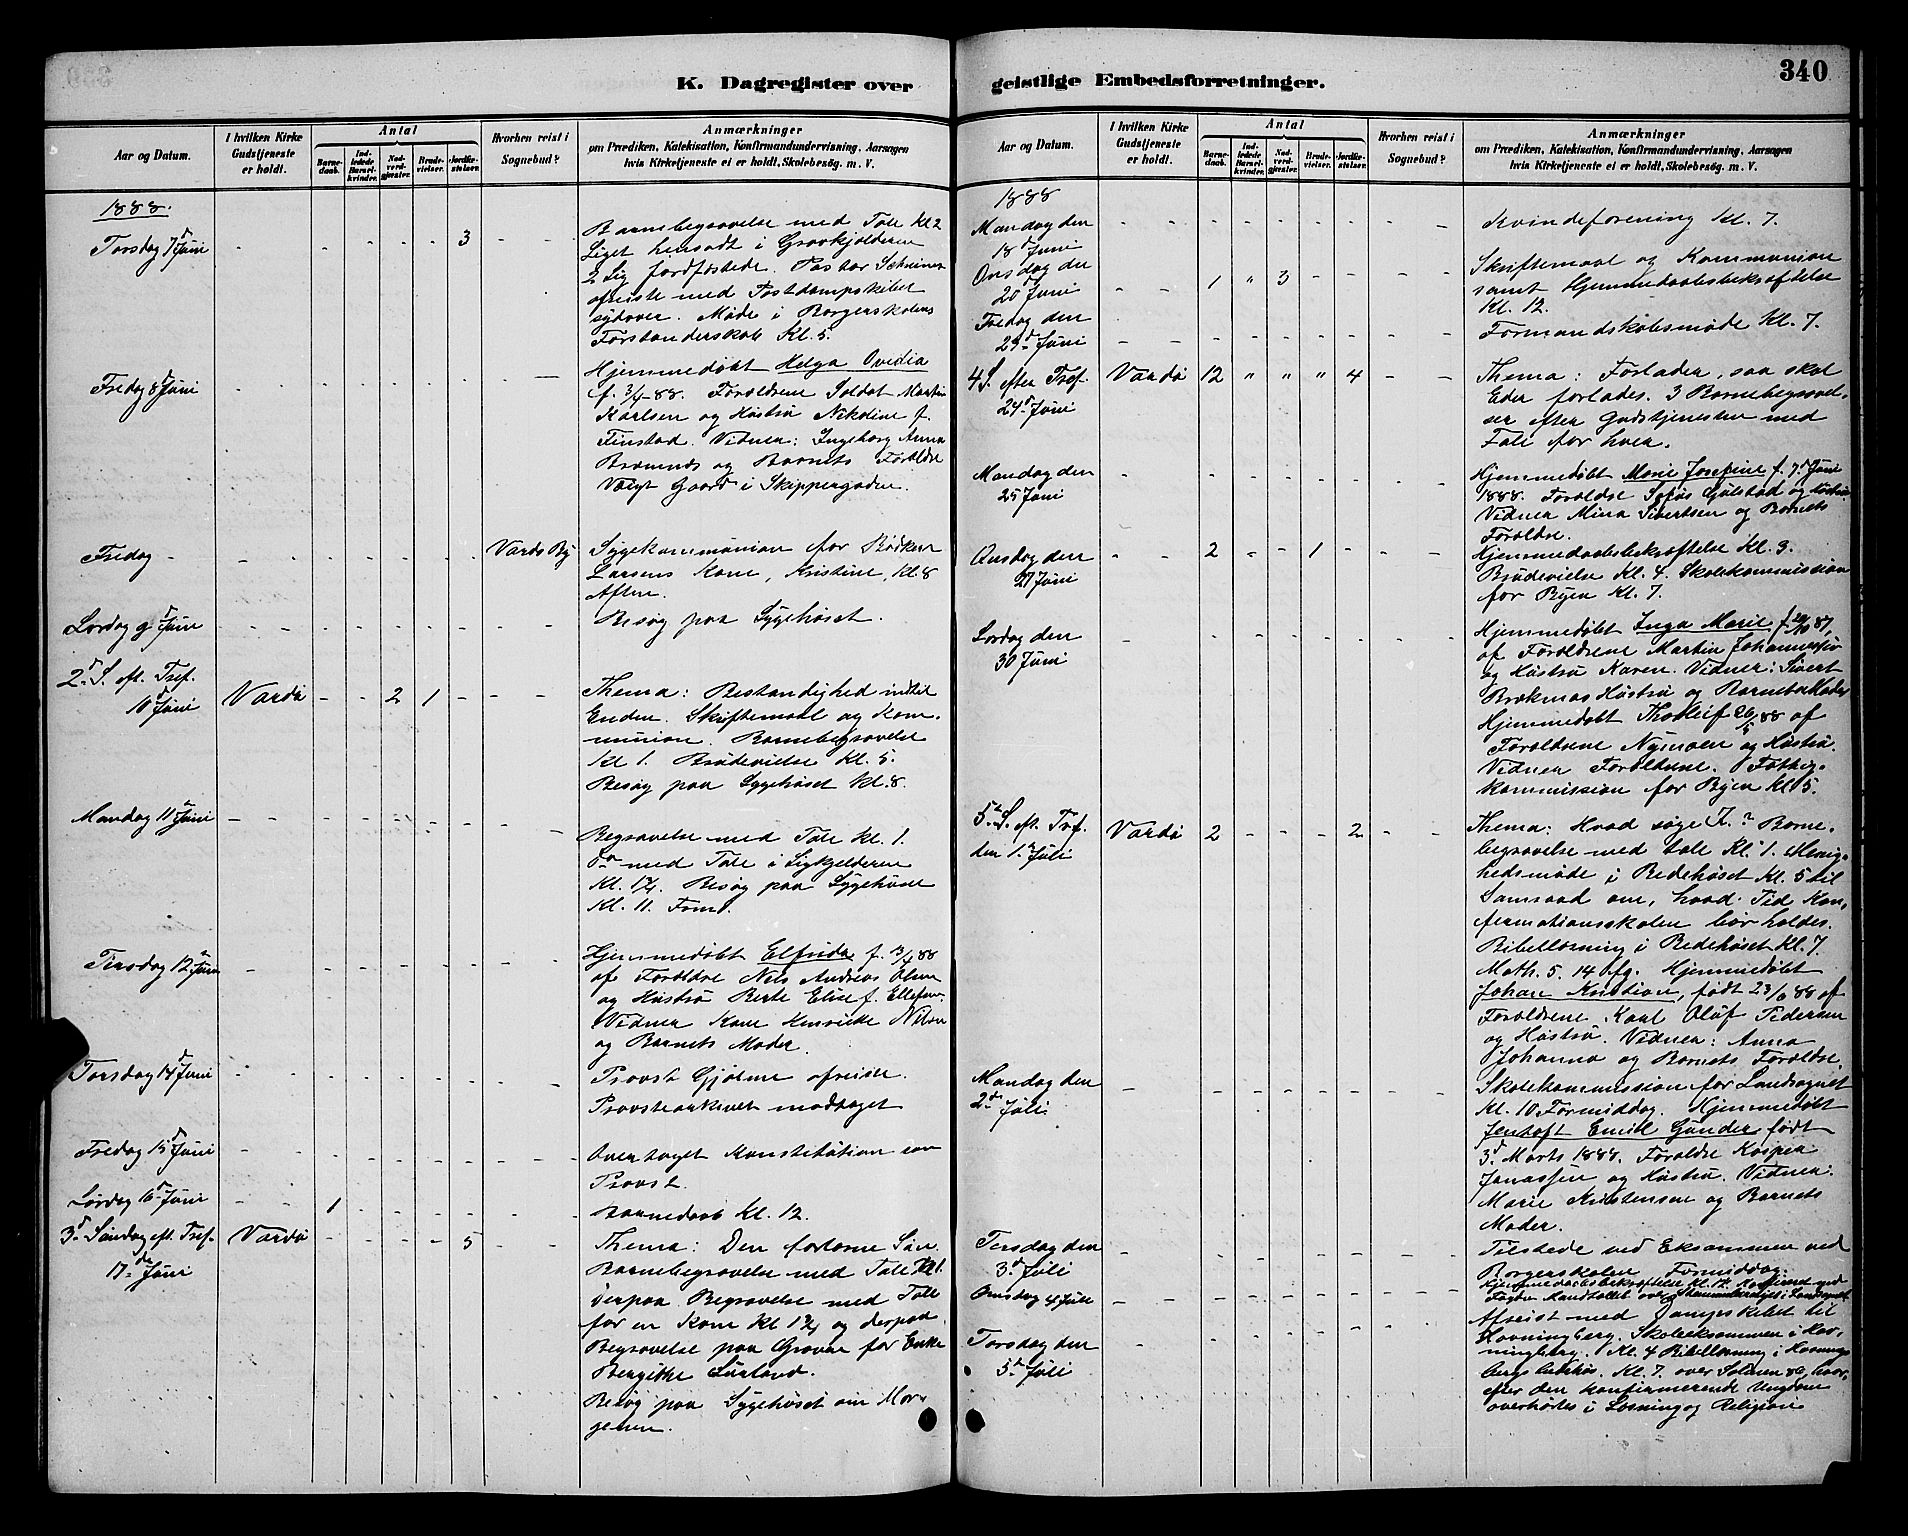 K. Dagregister over
Aar og Datum.
I hvilken Kirke Gudstjeneste er holdt.
Antal
Barnedaab.
Indledede Barselkvinder.
Nadverdgjæster.
Brudevielser.
Jordfæstelser.
Hvorhen reist i Sognebud?
Anmærkninger
om Prædiken, Katekisation, Konfirmandundervisning, Aarsagen
hvis Kirketjeneste ei er holdt, Skolebesøg. m. V.
1888.
Torsdag 7d Juni - - - - - 3 - -
Barnebegravelse med Tale Kl 2
Liget hensadt i Gravkjælderen
2 Lig jordfæstede. Pastor
afreiste med Postdampskibet
sydover. Møde i Borgerskolens
Forstanderskab Kl. 5.
Fredag 8d Juni
Hjemmedøbt Helga Ovedia
f. 3/4-88. Forældrene Soldat Martin
Karlsen og Hustru Nikoline f.
Finstad. Vidner: Ingeborg Anna
og Barnets Forældre
Voigt Gaard i Skippergaden.
Fredag - Vardø By
Sygekommunion for Bødker
Larsens Kone, Kristine, Kl. 8
Aften.
Lørdag 9d Juni
Besøg paa Sygehuset.
2d S. eft. Tref.
10d Juni Vardø - - 2 1 - - -
Thema: Bestandighed indtil
Enden. Skriftemaal og Kom-
munion. Barnebegravelse
Kl 1. Brudevielse Kl. 5.
Besøg paa Sygehuset Kl. 8.
Mandag 11d Juni
Begravelse med Tale Kl. 1.
do med Tale i Ligkjelderen
Kl. 1½. Besøg paa Sygehuset
Kl. 11. Form.
Tirsdag 12d Juni
Hjemmedøbt Elfrida f. 13/4 88
af Forældre Nils Andreas Olsen
og Hustru Berte Elise f. Ellefsen.
Vidner Kone Henrikke Nilsen
og Barnets Moder.
Torsdag 14d Juni
Provst Gjølme afreiste.
Provstearkivet modtaget
Fredag 15d Juni
Overtaget Konstitution som
Provst.
Lørdag 16d Juni - - 1
Barnedaab Kl. 12.
3d Søndag eft. Tref.
17de Juni Vardø - - - - 5 - -
Thema: Den fortabte Søn.
Barnebegravelse med Tale Kl 1.
Derpaa Begravelse med Tale
for en Kone Kl 1½ og derpaa
Begravelse paa Graven for Enke
Bergitte
Besøg paa Sygehuset om Mor-
genen.
geistlige Embedsforretninger.
340
Aar og Datum.
I hvilken Kirke Gudstjeneste er holdt.
Antal
Barnedaab.
Indledede Barselkvinder.
Nadverdgjæster.
Brudevielser.
Jordfæstelser.
Hvorhen reist i Sognebud?
Anmærkninger
om Prædiken, Katekisation, Konfirmandundervisning, Aarsagen
hvis Kirketjeneste ei er holdt, Skolebesøg. m. V.
1888
Mandag den
18d Juni
Kvindeforening Kl. 7.
Onsdag den
20d Juni - - 1 " 3 - - - -
Skriftemaal og Kommunion
samt Hjemmedaabsbekræftelse
Kl. 12.
Fredag den
29d Juni
Formandskabsmøde Kl. 7.
4 S. efter Tref. Vardø 12 " " " 4 - -
24d Juni
Thema: Forlader, saa skal
Eder forlades. 3 Barnebegravel-
ser efter Gudstjenesten med
Tale for hver.
Mandag den
25 Juni
Hjemmedøbt Marie Josefine f. 7d Juni
1888. Forældre Sofus Gulstad og Hustru
Vidner Mina Sivertsen og Barnets
Forældre.
Onsdag den
27 Juni - - 2 - - 1 - - -
Hjemmedaabsbekræftelse Kl. 3.
Brudevielse Kl. 4. Skolekommission
for Byen Kl. 7.
Lørdag den
30 Juni
Hjemmedøbt Inga Marie f. 87,
af Forældrene Martin Johannessen
og Hustru Karen. Vidner: Sivert
Hustru og Barnets Moder
Hjemmedøbt Thorleif 26/5 88 af
Forældrene Nymoen og Hustru.
Vidner Forældrene. Fattig-
kommission for Byen Kl 5.
5te S. eft. Tref. Vardø 2 - - - 2 - -
den 1. Juli
Thema: Hvad søge I? Barne-
begravelse med tale Kl. 1. Menig-
hedsmøde i Bedehuset Kl. 5 til
Samraad om, hvad Tid Kon-
firmationsskolen bør holdes.
Bibellæsning i Bedehuset Kl. 7.
Math. 5. 14 ffg. Hjemmedøbt
Johan Kristian, født 23/6 88 af
Forældrene Karl Oluf Pedersen
og Hustru. Vidner: Anna
Johanna og Barnets Forældre.
Mandag den
2d Juli
Skolekommission for Landsognet
Kl. 10 Formiddag. Hjemmedøbt
Jentoft Emil Gunder født
3d Marts 1888. Forældre Kasper
Jonassen og Hustru. Vidner:
Marie Kristensen og Barnets
Moder.
Tirsdag den
3d Juli
Tilstede ved Eksammen ved
Borgerskolen Formiddag.
Onsdag 4 Juli
Hjemmedaabsbekræftelse Kl. 12.
Torsdag den
5d Juli
Afreist med Dampskibet til
Havningberg. Skoleeksammen i Hav-
ningberg. Kl. 4 Bibellæsning i Havnings
bergs Kl. 7. over hvor-
efter den konfirmerende Ungdom
overhørtes i Læsning og Religion